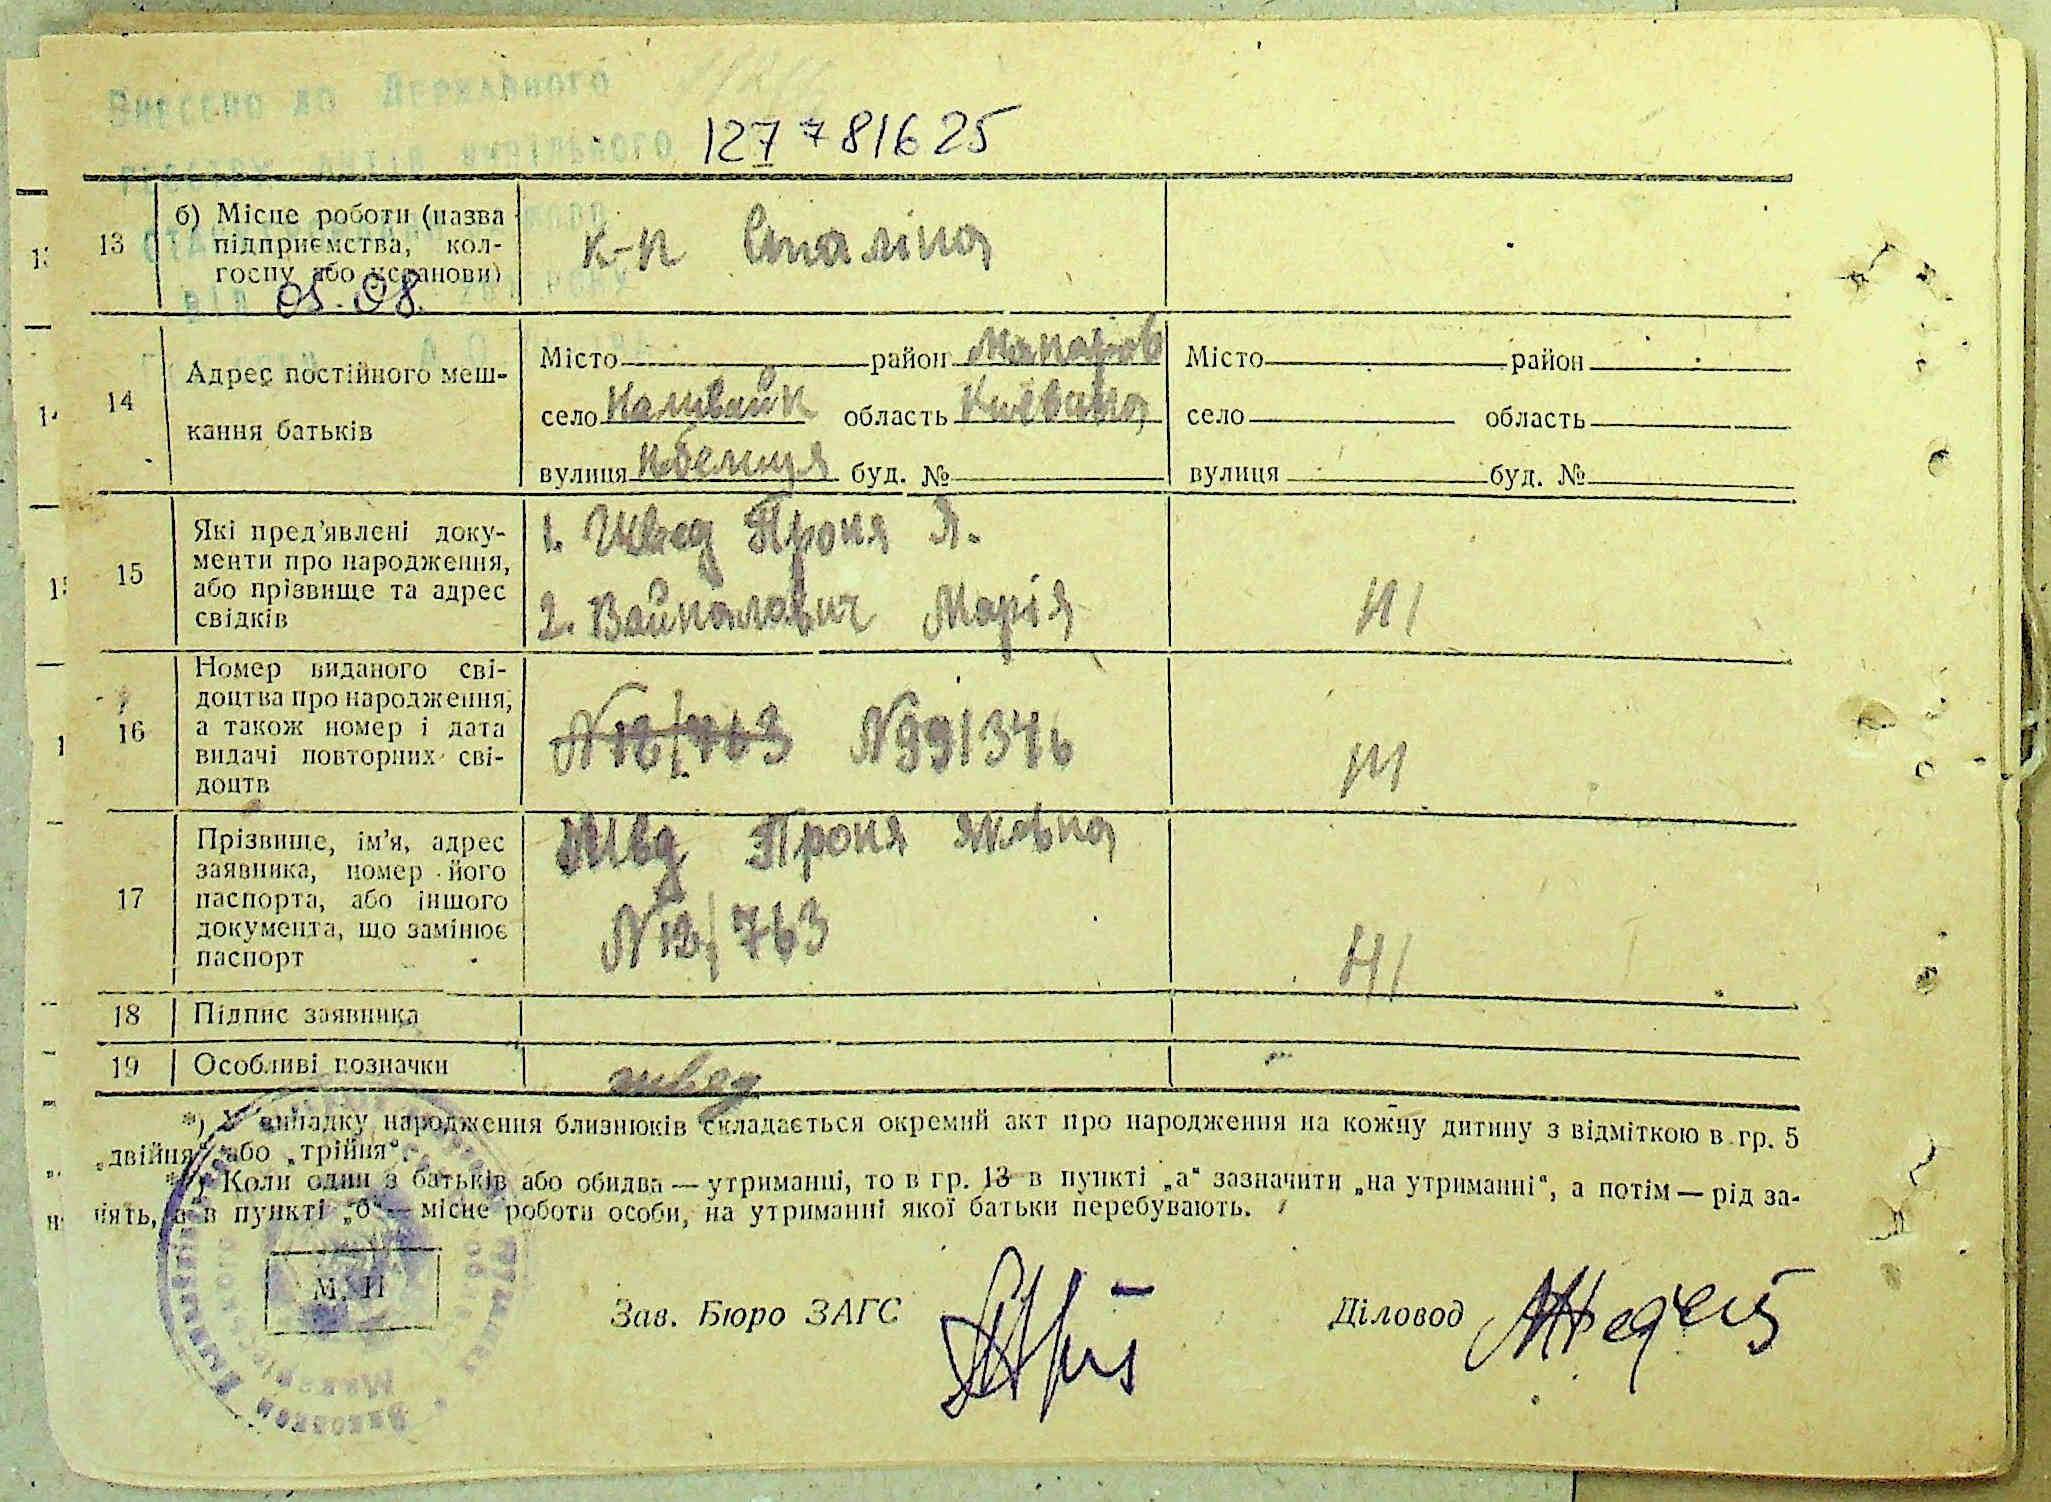 Внесено до Державного
127781625
13
б) Місце роботи (назва
підприємства, кол-
госпу або установи)
к-п Сталіна
05.08.
14
Адрес постійного меш-
кання батьків
Місто район Макарів
село область Київська
вулиця буд. №
Місто район
село область
вулиця буд. №
15
Які пред’явлені доку-
менти про народження,
або прізвище та адрес
свідків
1. Швед Проня Я.
2. Марія
ні
16
Номер виданого сві-
доцтва про народження,
а також номер і дата
видачі повторних сві-
доцтв
N12/763 N991346
ні
17
Прізвище, ім’я, адрес
заявника, номер його
паспорта, або іншого
документа, що замінює
паспорт
Швед Проня Яківна
N12/763
ні
18
Підпис заявника
19
Особливі позначки
Швед
*) У випадку народження близнюків складається окремий акт про народження на кожну дитину з відміткою в гр. 5
„двійня“ або „трійня“.
*) Коли один з батьків або обидва — утриманці, то в гр. 13 в пункті „а“ зазначити „на утриманні“, а потім — рід за-
нять, а в пункті „б“ — місце роботи особи, на утриманні якої батьки перебувають.
М. П
Зав. Бюро ЗАГС
Діловод